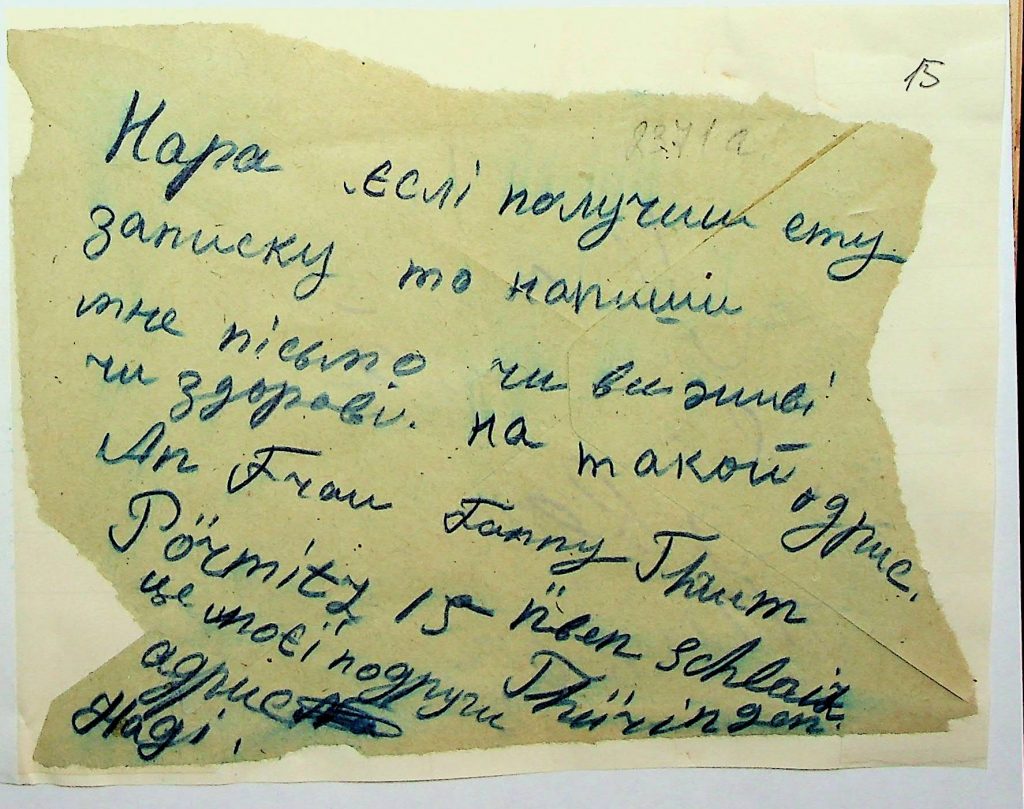 15
2371 а
Нара .єслі получиш ету
записку то напиши
мне пісьмо чи ви живі
чи здорові. на такой адрис.
An Frau Fanny Thum
Pörmitz 15 über Schleiz
це моєї подруги Thüringen.
адрис
Наді.